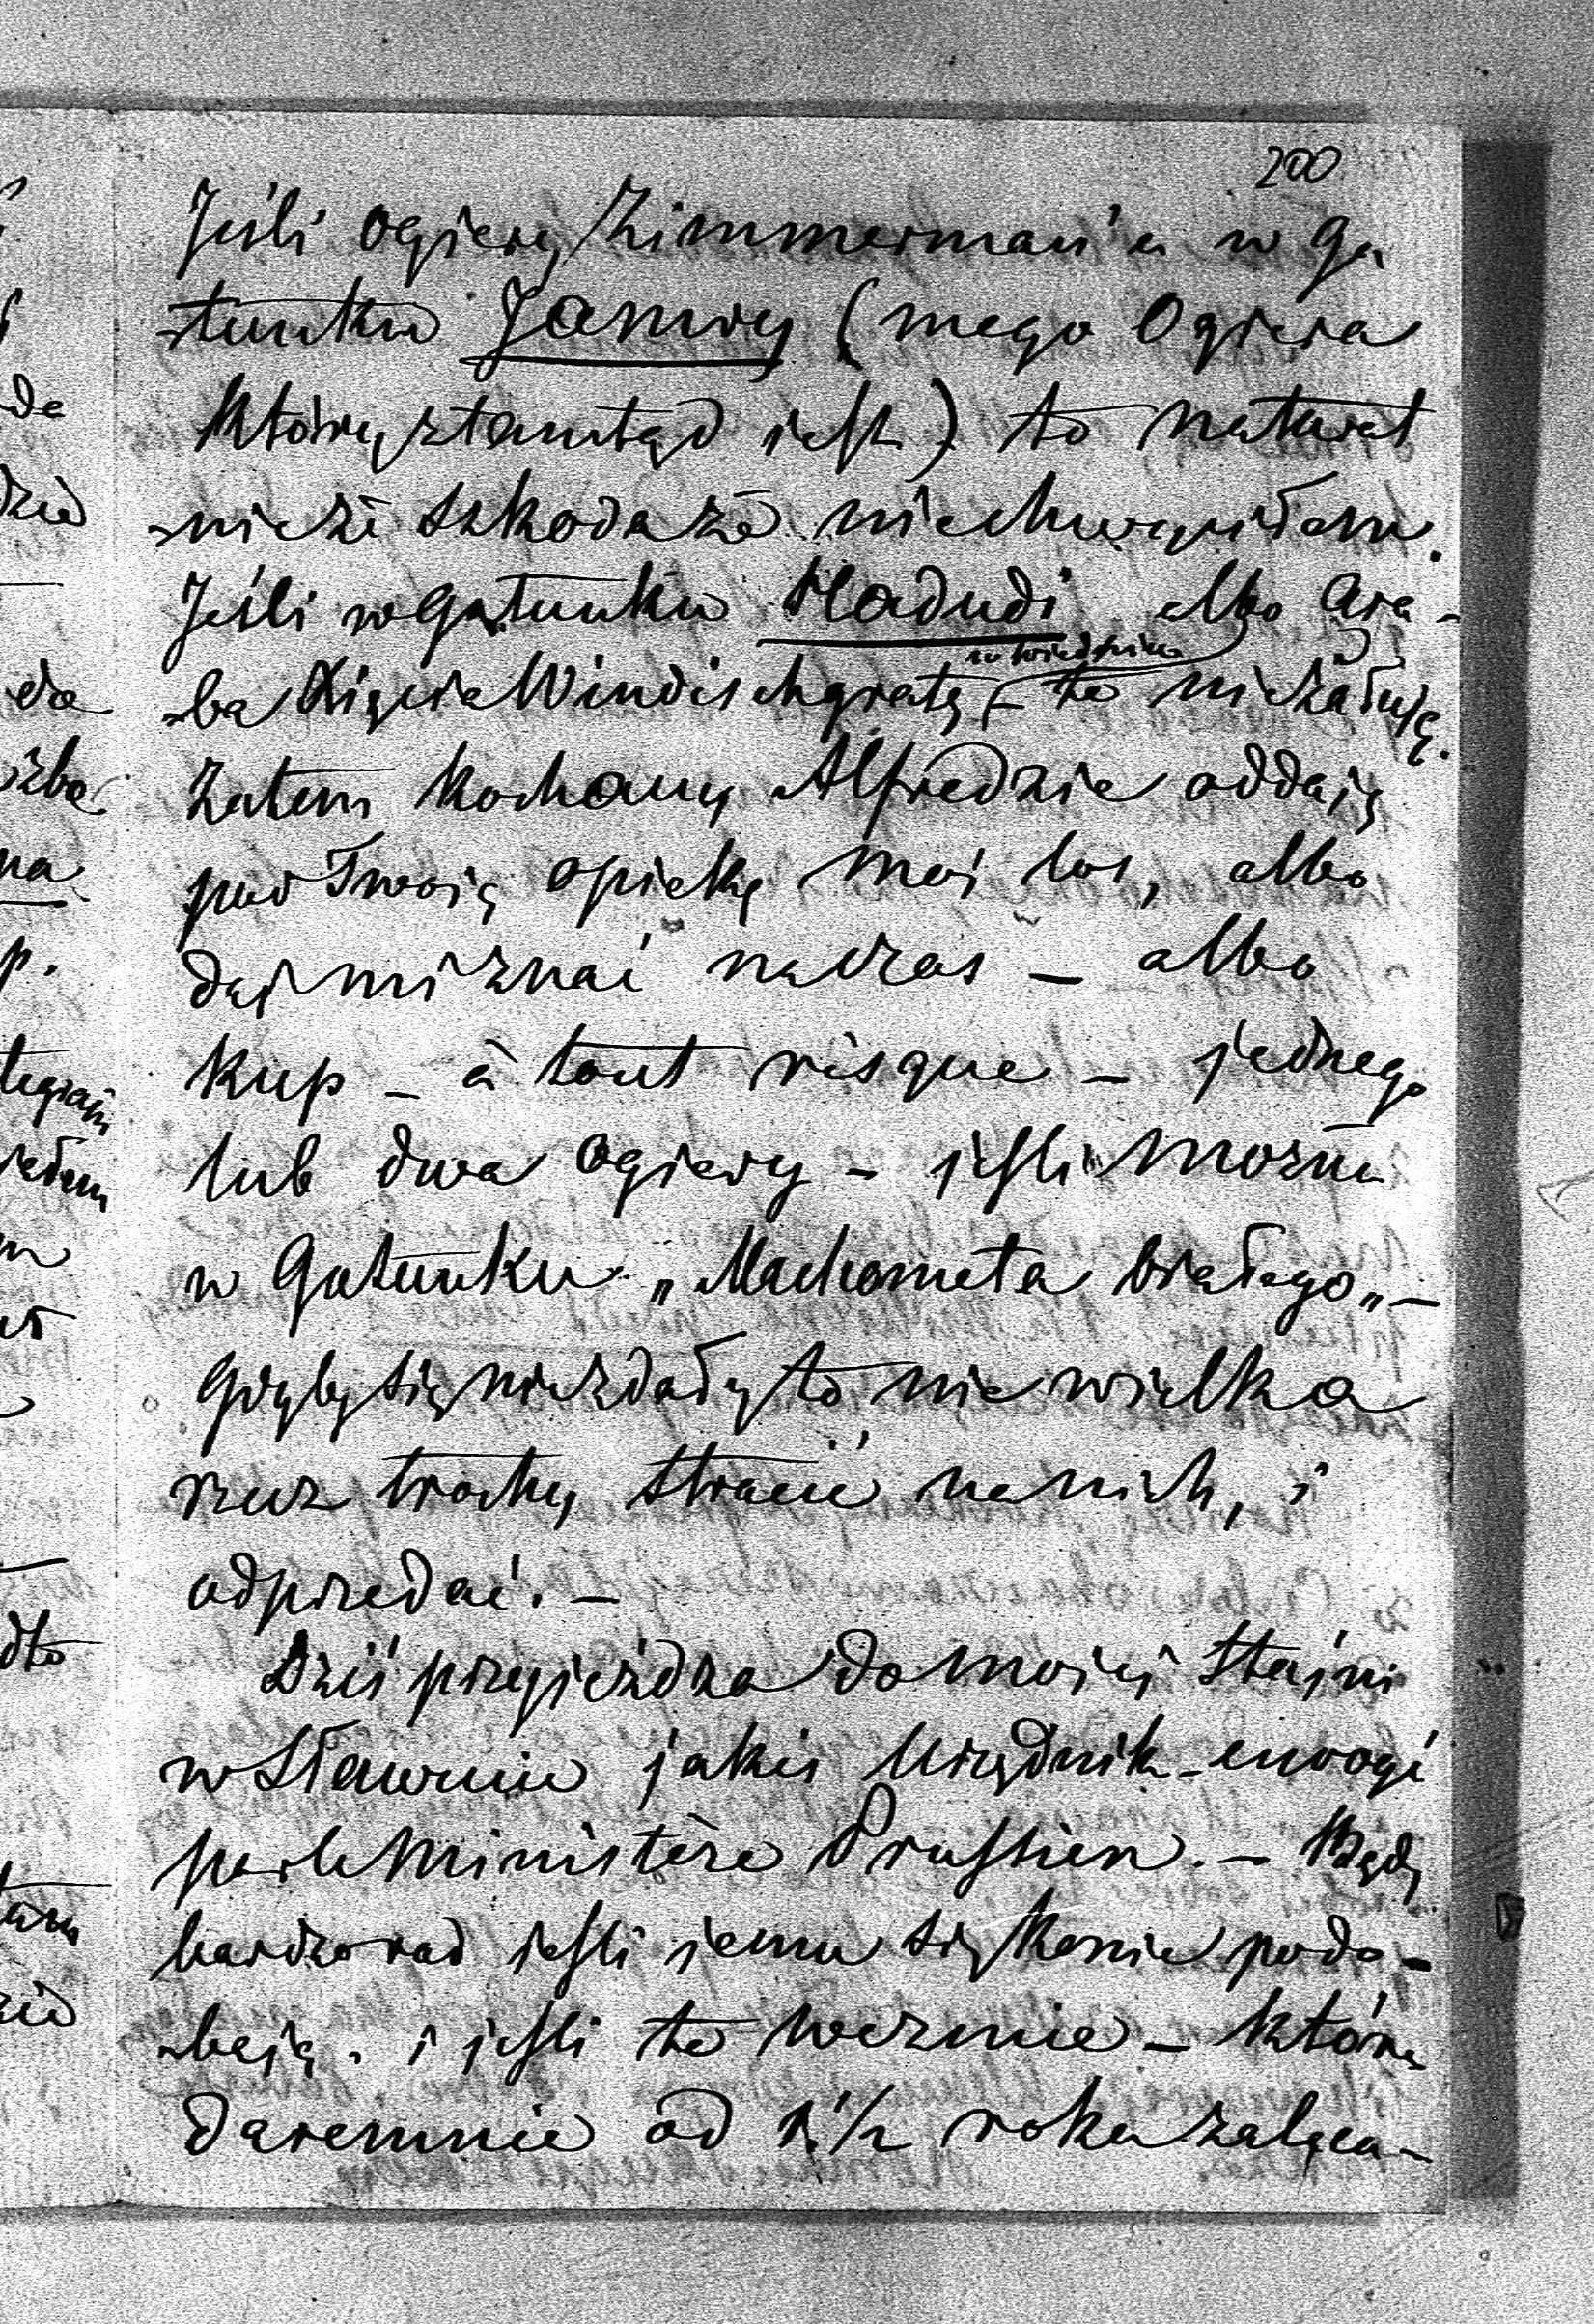 200
Jeśli Ogiery Zimmerman'a w Ga
-tunku Janwy (mego Ogiera
który ztamtąd jest) to natural
-nie że szkoda że niechwyciłem.
Jeśli w Gatunku Hadudi albo Ara-
-ba Xięcia Windischgratz (w Wiedniu) – to nieżałuję.
Zatem kochany Alfredzie oddaję
pod Twoją opiekę mój los, albo
daj mi znać na czas – albo
kup – à tout risque – jednego
lub dwa Ogiery – jeśli można
w Gatunku „Machometa białego„ –
Gdyby się niezdały to nie wielka
rzecz trochę stracić na nich, i
odprzedać. –
Dziś przyjeżdza do mojej Stajni
w Sławnie jakiś Urzędnik envoyé
par le Ministère Prussien. – Będę
bardzo rad jeśli jemu się konie podo-
-bają. i jeśli te wezmie – które
daremnie od 1 1/2 roku zaleca-
de
dzie
do
na
p.